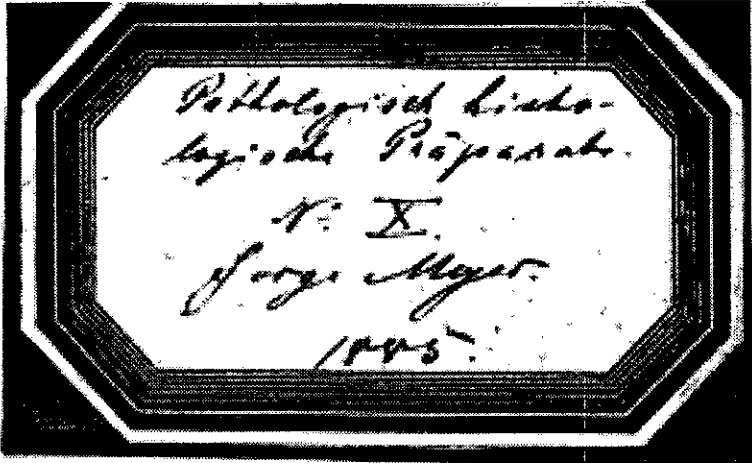 Pathologisch histo-
logische Präparate.
N: X.
Meyer.
1885.